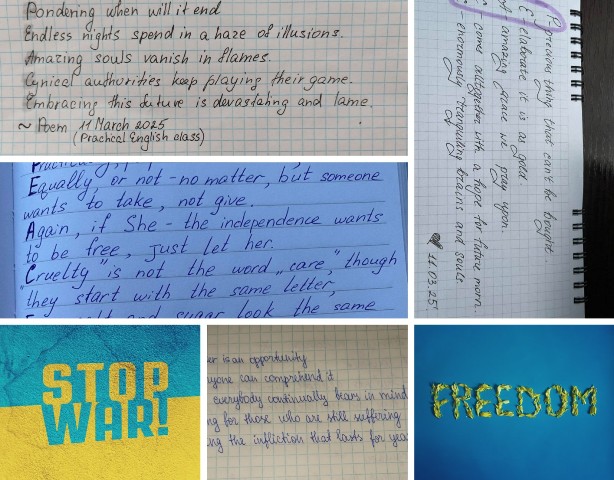 Pondering when will it end
Endless nights spend in a haze of illusions.
Amazing souls vanish in flames.
Cynical authorities keep playing their game.
Embracing this future is devastating and lame.
~ Poem 11 March 2025
(Practical English class)
P precious thing that can't be bought
E - elaborate it is as gold
A - amazing place we pray upon
C - come alltogether with a hope for future morn.
E - enormously tranquiling brains and souls
11.03.25
Equally, or not - no matter, but someone
wants to take, not give.
Again, if She - the independence wants
to be free, just let her.
"Cruelty" is not the word "care," though
they start with the same letter,
and sugar look the same
STOP
WAR!
er is an opportunity
yone can comprehend it
everybody continually bears in mind
ng for those who are still suffering
ng the infliction that lasts for yea
FREEDOM